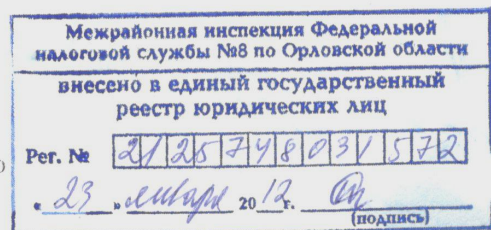 Межрайонная инспекция Федеральной
налоговой службы №8 по Орловской области
внесено в единый государственный
реестр юридических лиц
Рег. № 2125748031572
« 23 » января 2012 г.
(подпись)